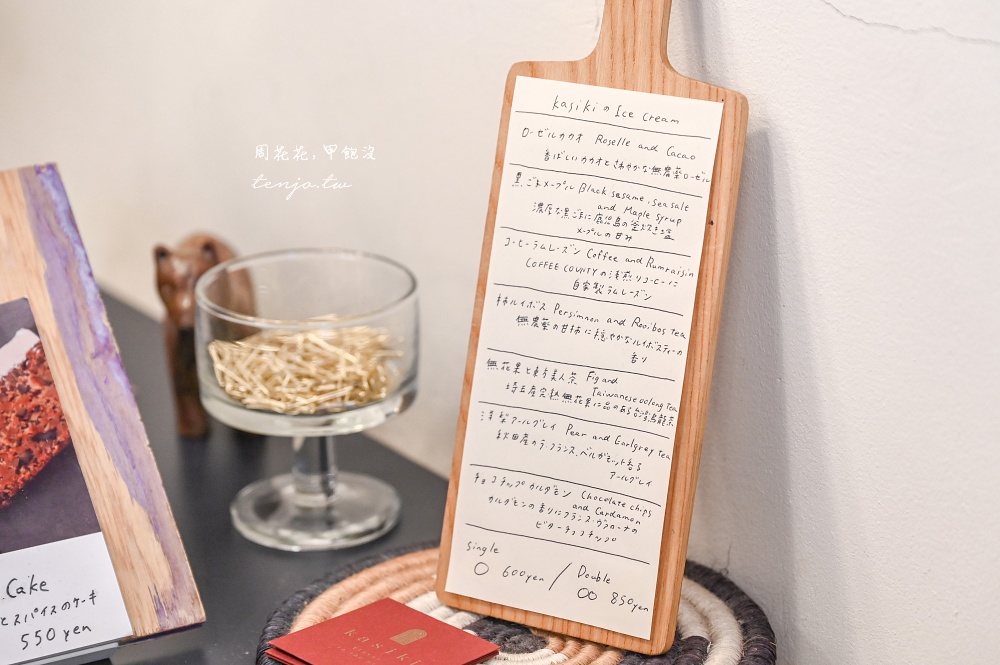 周花花,甲飽沒
tenjo.tw
kasikiのIce cream
ローゼルカカオ Roselle and Cacao
香ばしいカカオとさわやかな無農薬ローゼル
黒ごまメープル Black sesame, sea salt
and Maple syrup
濃厚な黒ごまに鹿児島の釜炊き塩
メープルの甘み
コーヒーラムレーズン Coffee and Rumraisin
COFFEE COUNTYの浅煎りコーヒーに
自家製ラムレーズン
柿ルイボス Persimmon and Rooibos tea
無農薬の甘柿に穏やかなルイボスティーの
香り
無花果と東方美人茶 Fig and
Taiwanese oolong tea
埼玉産完熟無花果に品のある台湾烏龍茶
洋梨アールグレイ Pear and Earlgrey tea
秋田産のラ・フランス、ベルガモット香る
アールグレイ
チョコチップカルダモン Chocolate chips
and Cardamon
カルダモンの香りにフランス・ヴァローナの
ビターチョコチップ
Single
600yen / Double
850yen
Cake
とスパイスのケーキ
550yen
kasiki